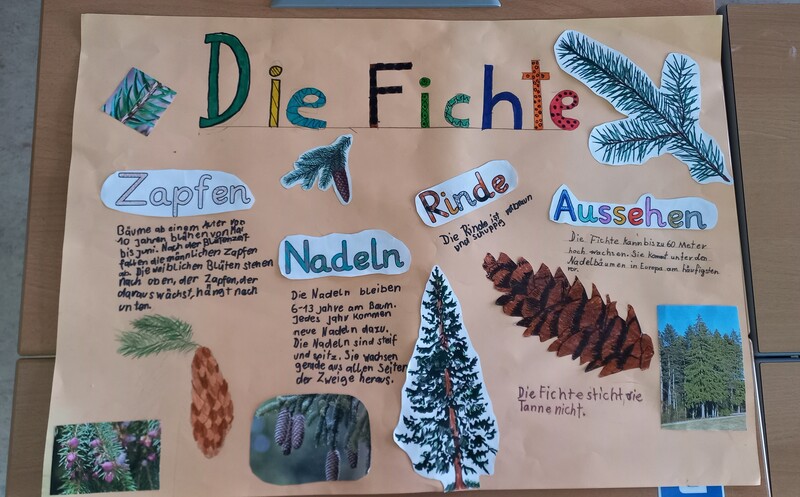 Die Fichte
Zapfen
Bäume ab einem Alter von
10 Jahren blühen von Mai
bis juni. Nach der Blütenzeit
fallen die männlichen Zapfen
ab. Die weiblichen Blüten stehen
nach oben, der Zapfen, der
daraus wächst, hängt nach
unten.
Nadeln
Die Nadeln bleiben
6-13 jahre am Baum.
Jedes jahr kommen
neue Nadeln dazu.
Die Nadeln sind steif
und spitz. Sie wachsen
gerade aus allen Seiten
der Zweige heraus.
Rinde
Die Rinde ist rotbraun
und schuppig
Aussehen
Die Fichte kann bis zu 60 Meter
hoch wachsen. Sie kommt unter den
Nadelbäumen in Europa am häufigsten
vor.
Die Fichte sticht, die
Tanne nicht.